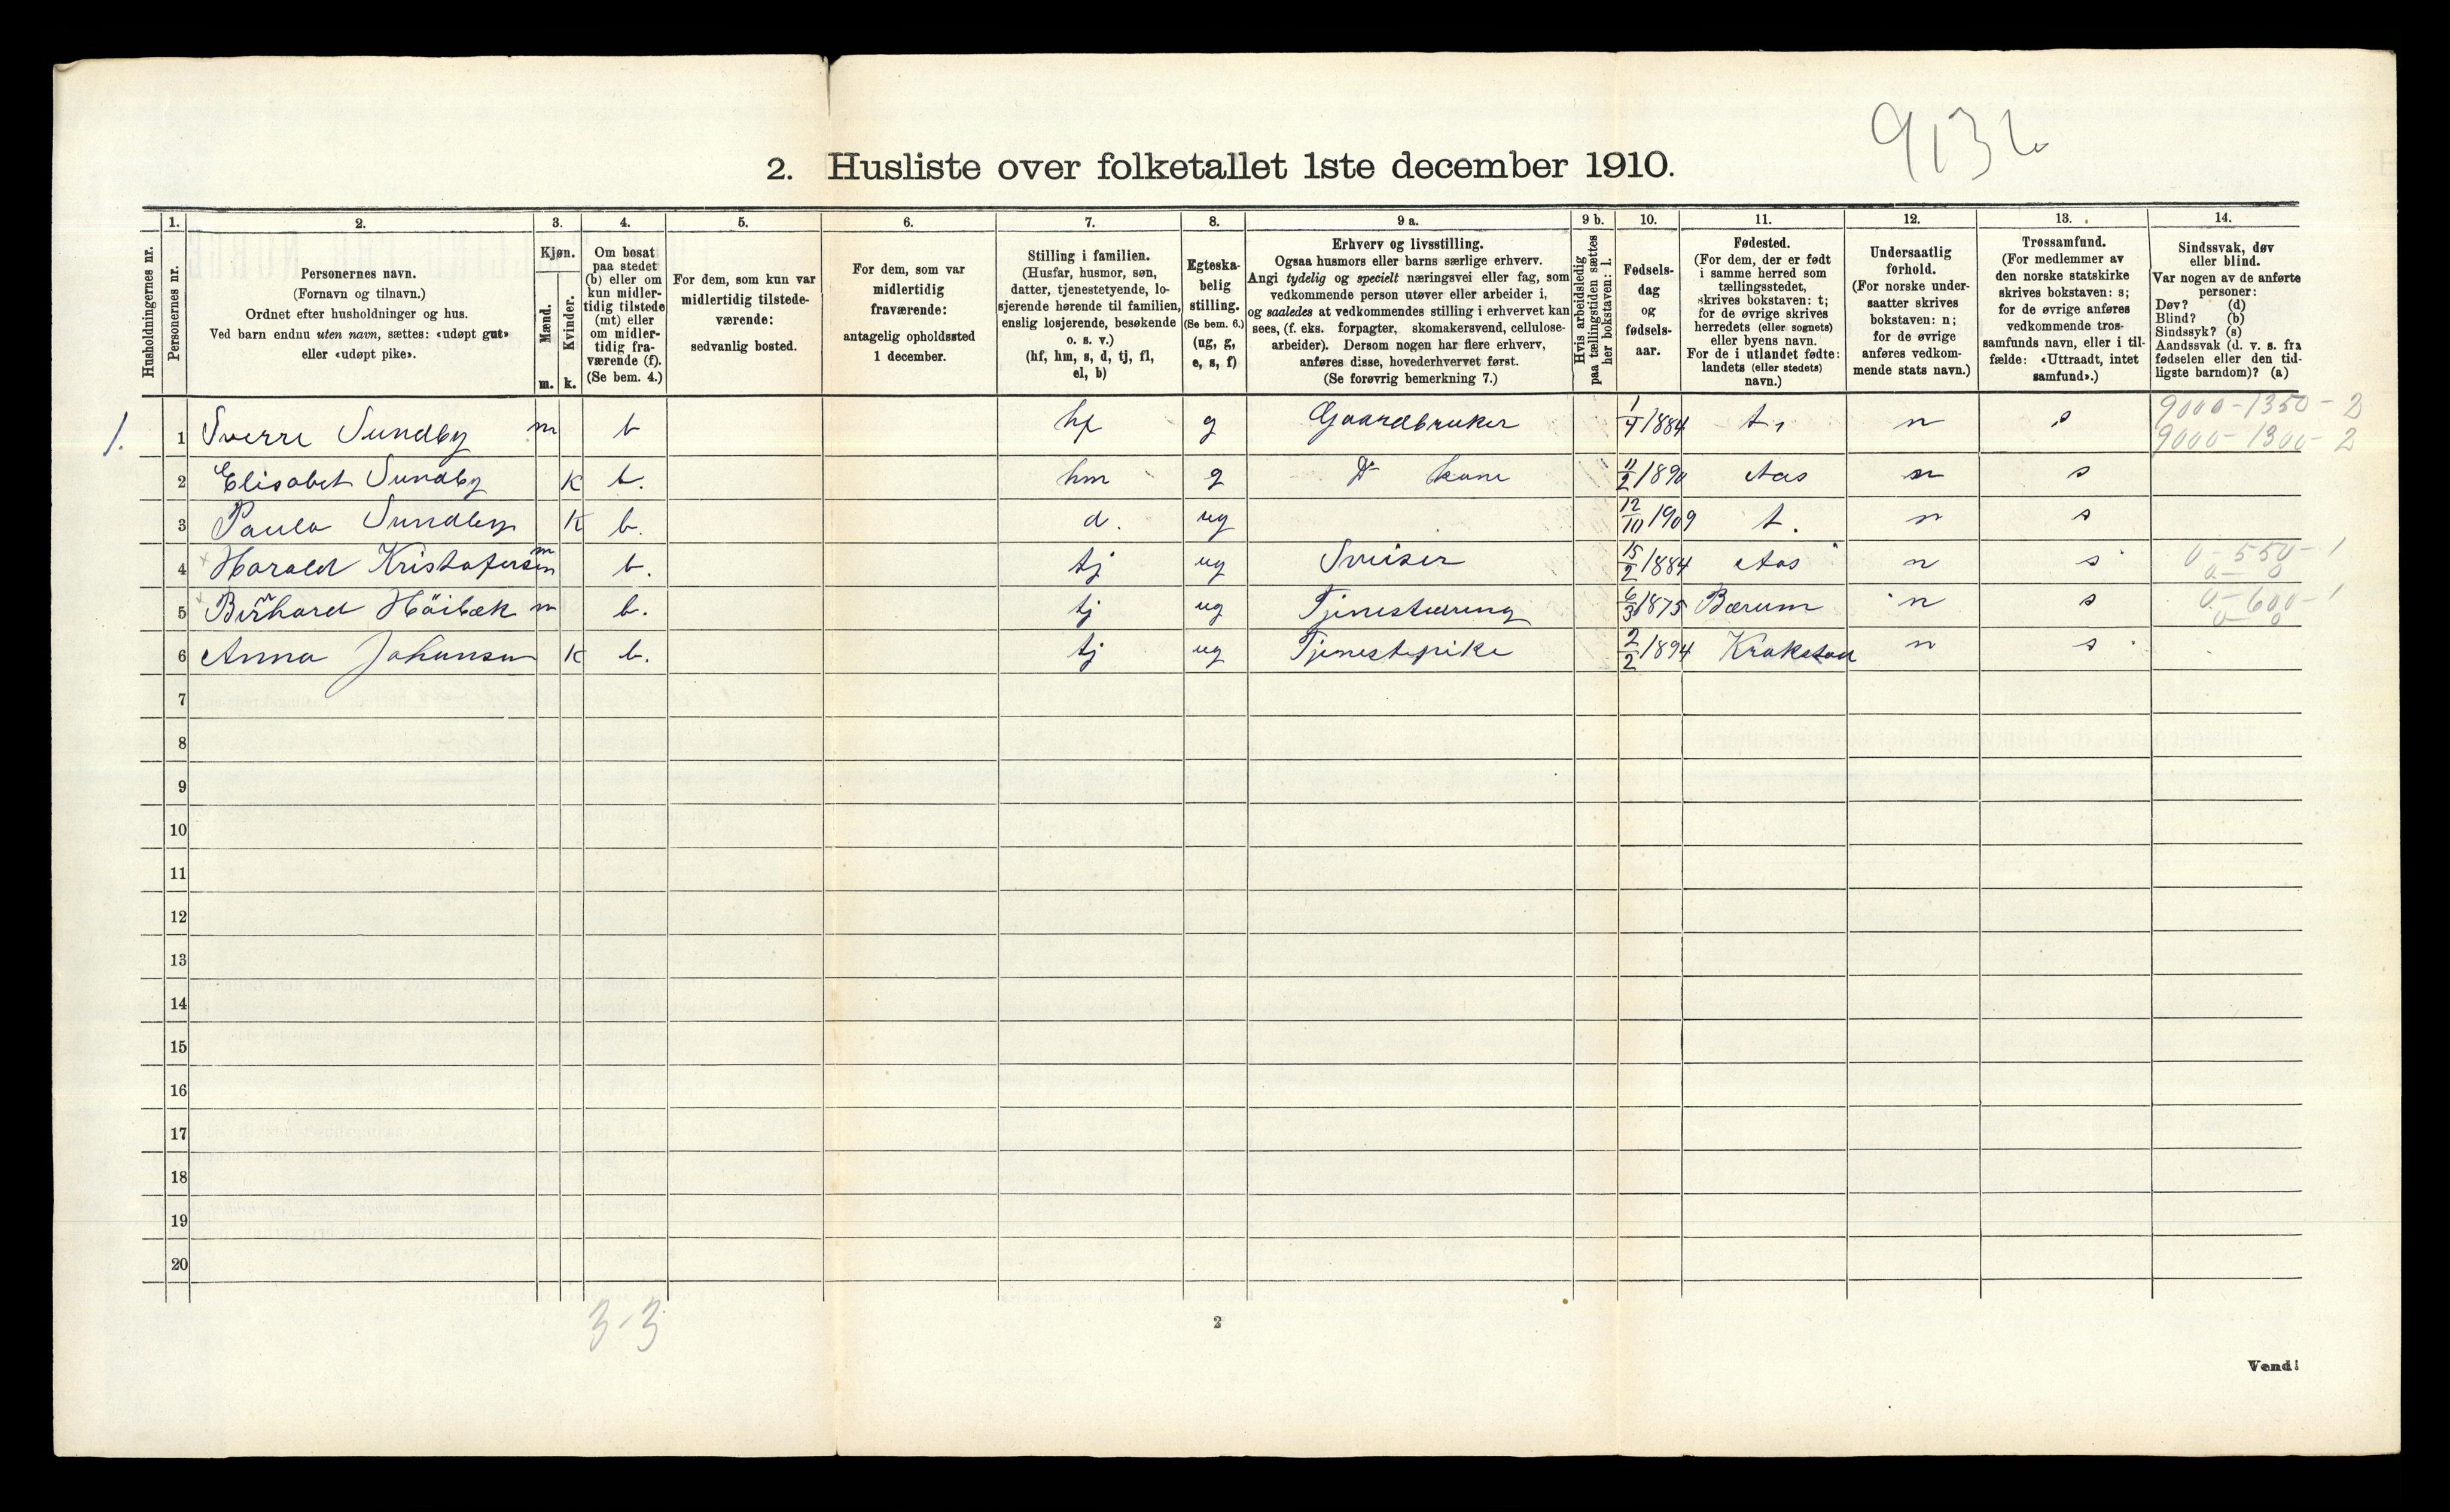 9136
2. Husliste over folketallet 1ste december 1910.
Husholdningernes nr.
1.
Personernes nr.
2.
Personernes navn.
(Fornavn og tilnavn.)
Ordnet efter husholdninger og hus.
Ved barn endnu uten navn, sættes: «udøpt gut»
eller «udøpt pike».
3.
Kjøn.
Mænd.
m.
Kvinder.
k.
4.
Om bosat
paa stedet
(b) eller om
kun midler-
tidig tilstede
(mt) eller
om midler-
tidig fra-
værende (f).
(Se bem. 4.)
5.
For dem, som kun var
midlertidig tilstede-
værende:
sedvanlig bosted.
6.
For dem, som var
midlertidig
fraværende:
antagelig opholdssted
1 december.
7.
Stilling i familien.
(Husfar, husmor, søn,
datter, tjenestetyende, lo-
sjerende hørende til familien,
enslig losjerende, besøkende
o. s. v.)
(hf, hm, s, d, tj, fl,
el, b)
8.
Egteska-
belig
stilling.
(Se bem. 6.)
(ug, g,
e, s, f)
9 a.
Erhverv og livsstilling.
Ogsaa husmors eller barns særlige erhverv.
Angi tydelig og specielt næringsvei eller fag, som
vedkommende person utøver eller arbeider i,
og saaledes at vedkommendes stilling i erhvervet kan
sees, (f. eks. forpagter, skomakersvend, cellulose-
arbeider). Dersom nogen har flere erhverv,
anføres disse, hovederhvervet først.
(Se forøvrig bemerkning 7.)
9 b.
Hvis arbeidsledig
paa tællingstiden sættes
her bokstaven: l.
10.
Fødsels-
dag
og
fødsels-
aar.
11.
Fødested.
(For dem, der er født
i samme herred som
tællingsstedet,
skrives bokstaven: t;
for de øvrige skrives
herredets (eller sognets)
eller byens navn.
For de i utlandet fødte:
landets (eller stedets)
navn.)
12.
Undersaatlig
forhold.
(For norske under-
saatter skrives
bokstaven: n;
for de øvrige
anføres vedkom-
mende stats navn.)
13.
Trossamfund.
(For medlemmer av
den norske statskirke
skrives bokstaven: s;
for de øvrige anføres
vedkommende tros-
samfunds navn, eller i til-
fælde: «Uttraadt, intet
samfund».)
14.
Sindssvak, døv
eller blind.
Var nogen av de anførte
personer:
Døv? (d)
Blind? (b)
Sindssyk? (s)
Aandssvak (d. v. s. fra
fødselen eller den tid-
ligste barndom)? (a)
1. 1 Sverre Sundby m b hf g Gaardbruker 1/4 1884 t. n s 9000-1350-2
9000-1300-2
2 Elisabet Sundby k b. hm g Do kone 11/2 1890 Aas n s
3 Paula Sundby k b. d. ug 12/10 1909 t. n s
4 Harald Kristofersen m b. tj ug Sveiser 15/2 1884 Aas n s 0-550-1
0-0
5 Bernhard Höibæk m b. tj ug Tjenestedreng 6/3 1875 Bærum n s 0-600-1
0-0
6 Anna Johansen k b. tj ug Tjenestepike 2/2 1894 Krakstad n s
7
8
9
10
11
12
13
14
15
16
17
18
19
20
3-3
2
Vend!